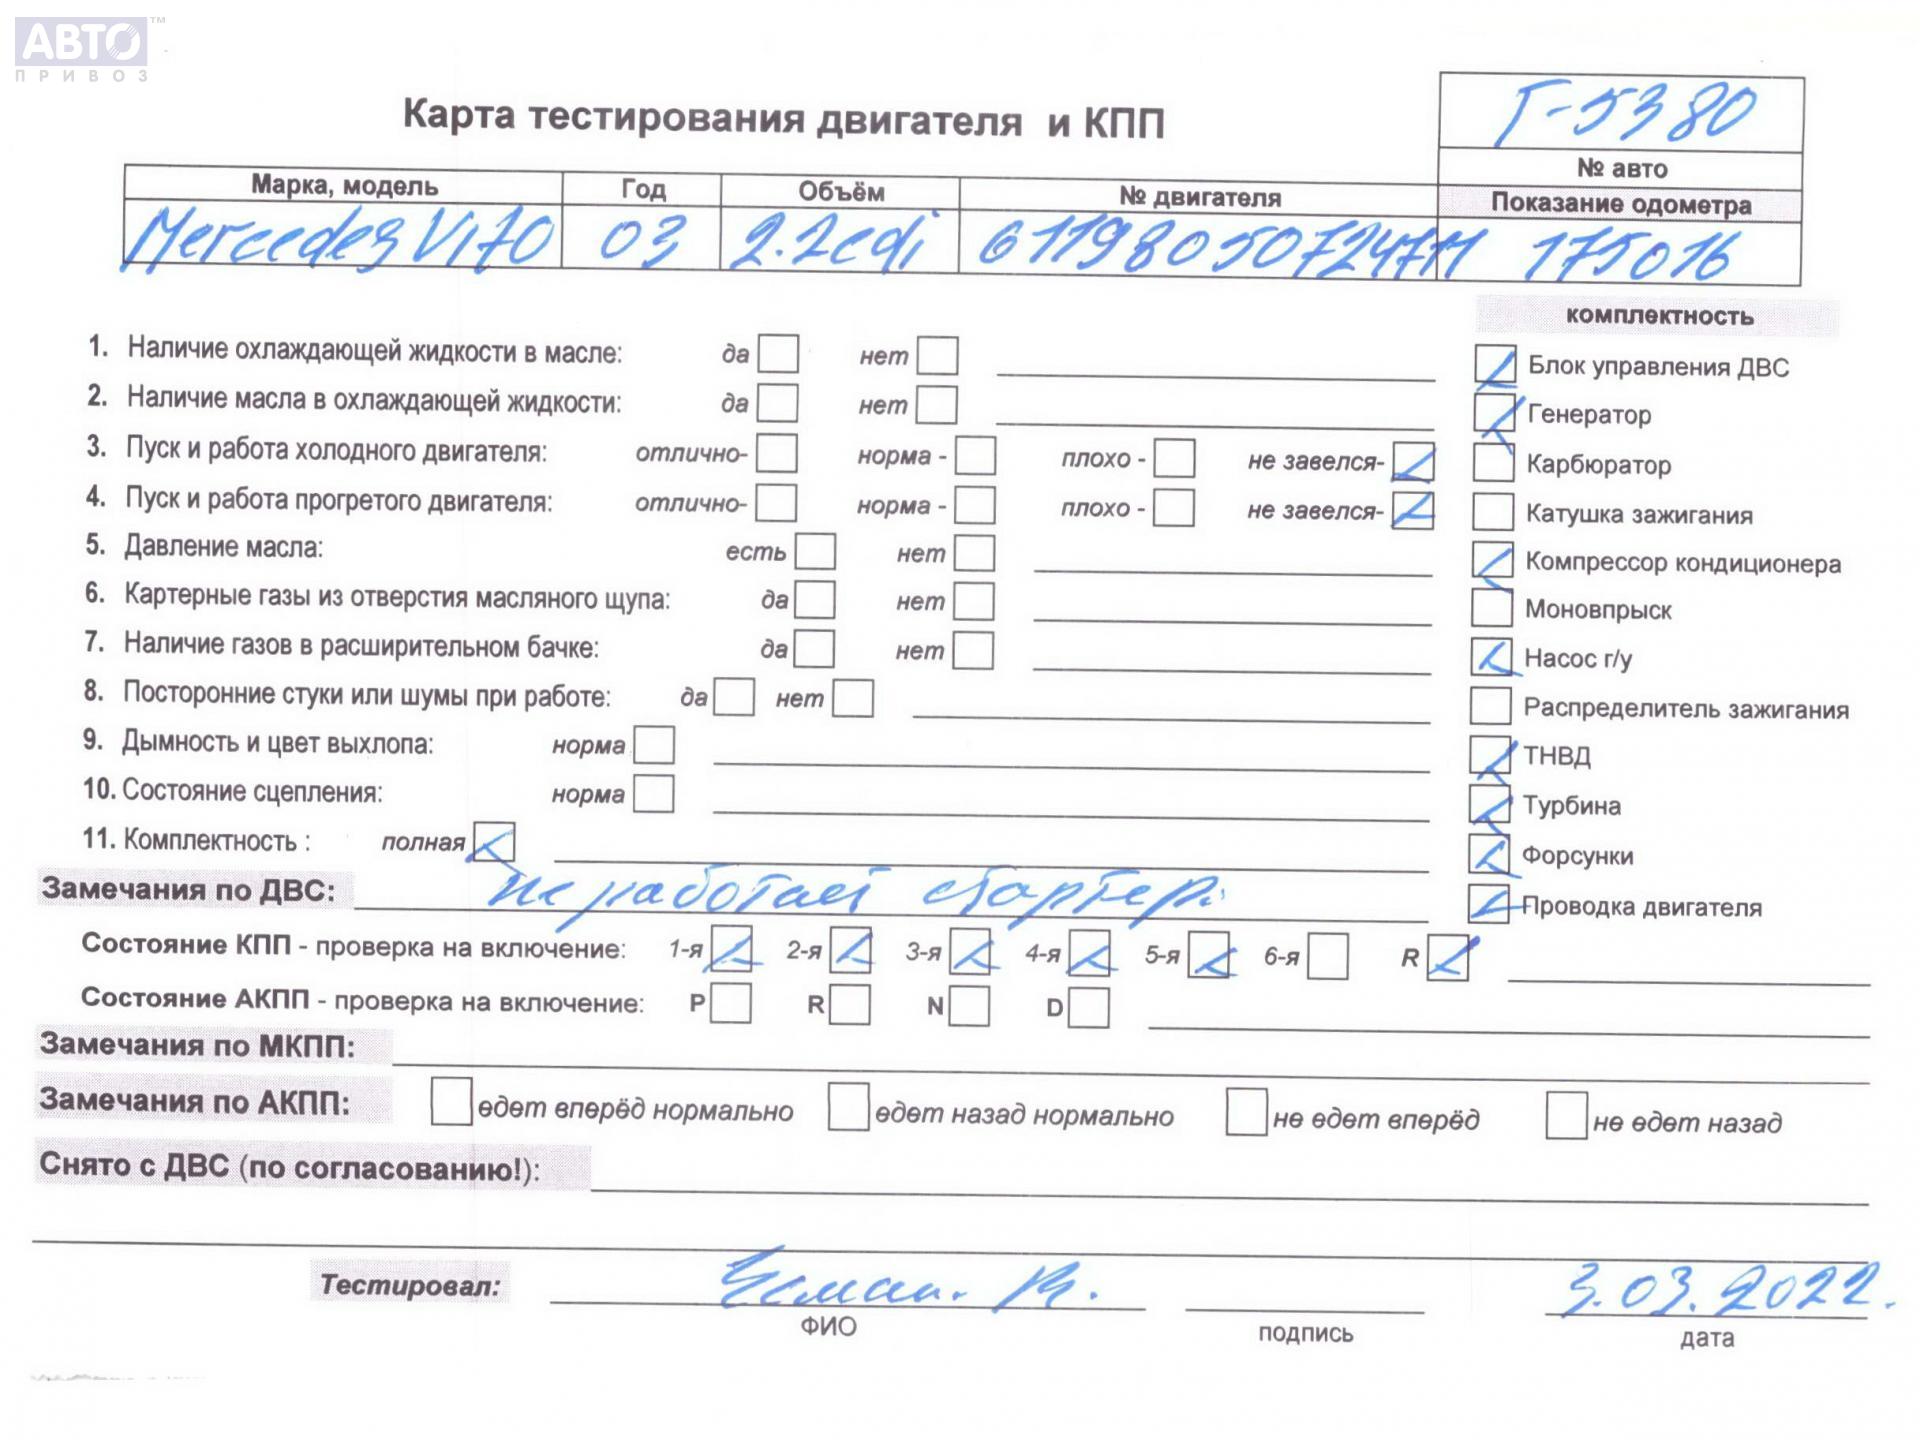 АВТО™
ПРИВОЗ
Карта тестирования двигателя и КПП
Г-5380
№ авто
Марка, модель Год Объём № двигателя Показание одометра
Mercedes Vito 03 2.2cdi 175016
комплектность
1. Наличие охлаждающей жидкости в масле: да нет
Блок управления ДВС
2. Наличие масла в охлаждающей жидкости: да нет
Генератор
3. Пуск и работа холодного двигателя: отлично- норма - плохо - не завелся-
Карбюратор
4. Пуск и работа прогретого двигателя: отлично- норма - плохо - не завелся-
Катушка зажигания
5. Давление масла: есть нет
Компрессор кондиционера
6. Картерные газы из отверстия масляного щупа: да нет
Моновпрыск
7. Наличие газов в расширительном бачке: да нет
Насос г/у
8. Посторонние стуки или шумы при работе: да нет
Распределитель зажигания
9. Дымность и цвет выхлопа: норма
ТНВД
10. Состояние сцепления: норма
Турбина
11. Комплектность : полная
Форсунки
Замечания по ДВС: не работает стартер.
Проводка двигателя
Состояние КПП - проверка на включение: 1-я 2-я 3-я 4-я 5-я 6-я R
Состояние АКПП - проверка на включение: P R N D
Замечания по МКПП:
Замечания по АКПП: едет вперёд нормально едет назад нормально не едет вперёд не едет назад
Снято с ДВС (по согласованию!):
Тестировал: 3.03.2022.
ФИО подпись дата